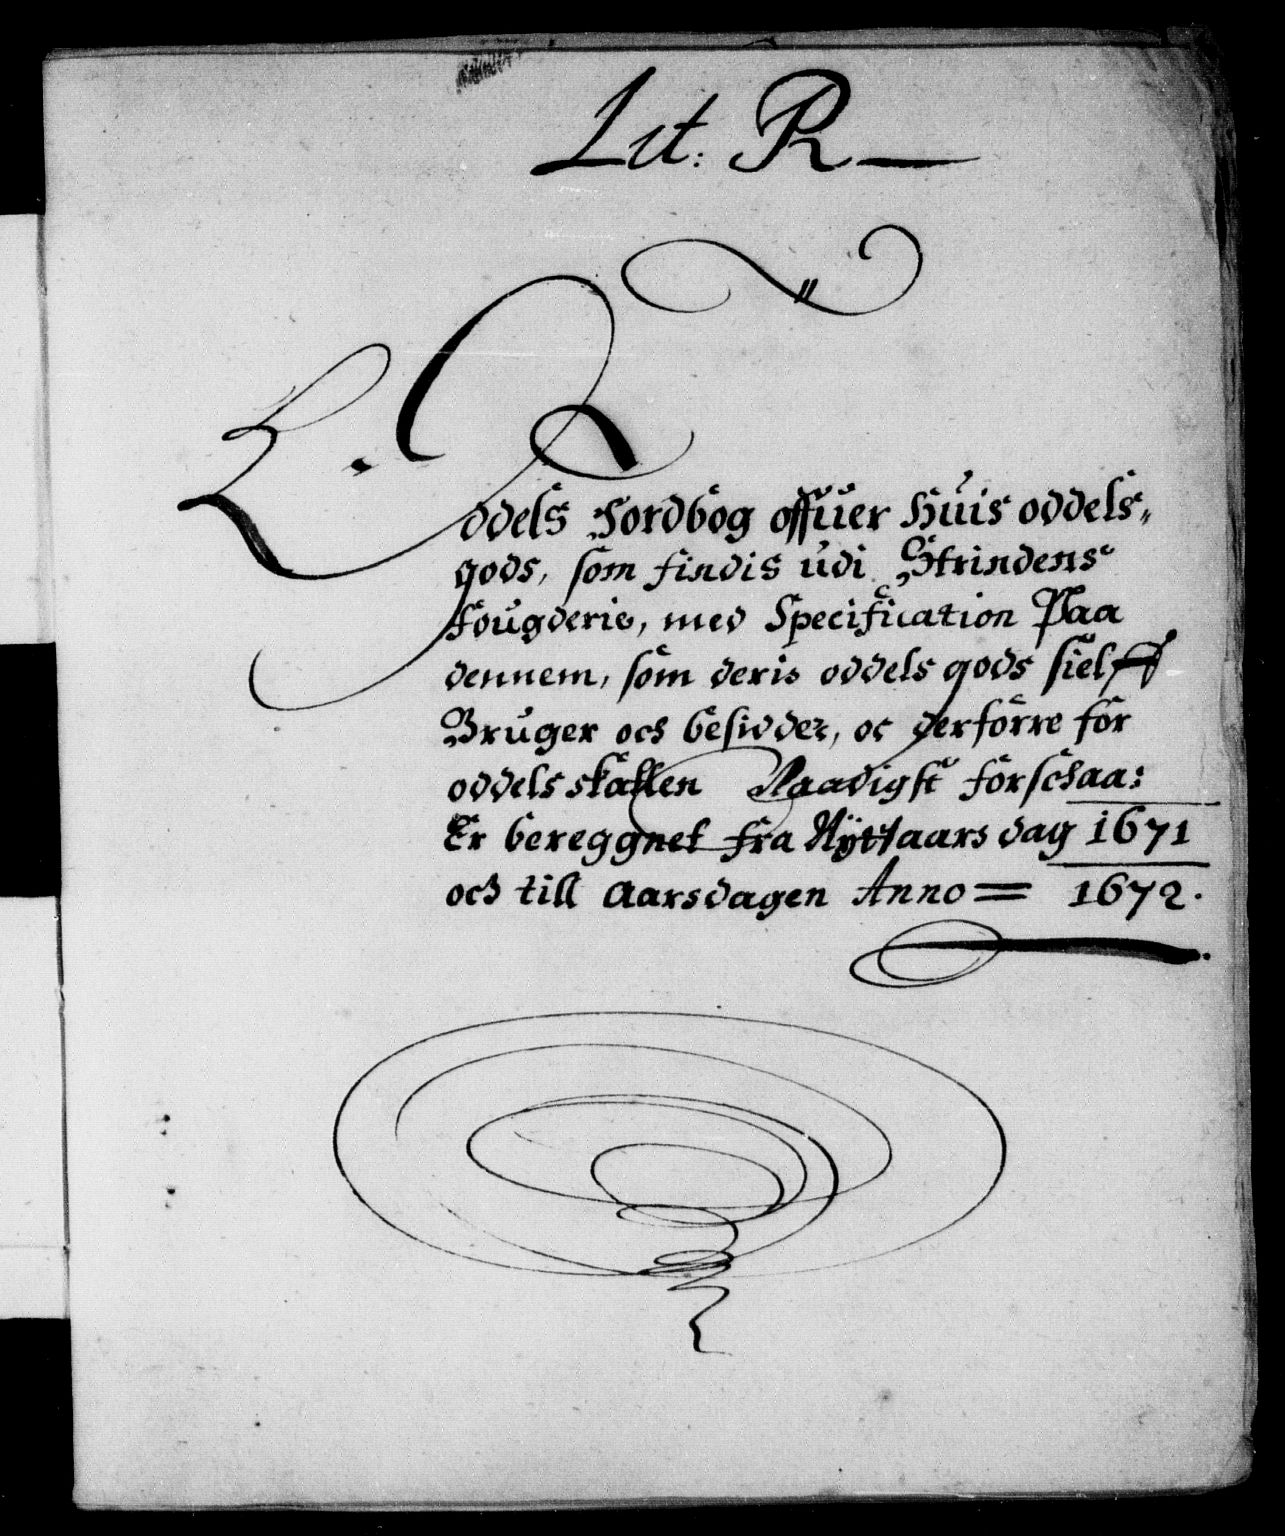 Lit: R
Oddels Jordbog offuer Huis oddels,,
gods, som findis udi Strindens
fougderie, med Specification Paa
dennem, som deris oddels gods sielff
Bruger och besidder, oc derforre for
oddels skatten Naadigst forschaa:
Er bereggnet fra Nÿttaars dag 1671
och till Aarsdagen Anno = 1672.